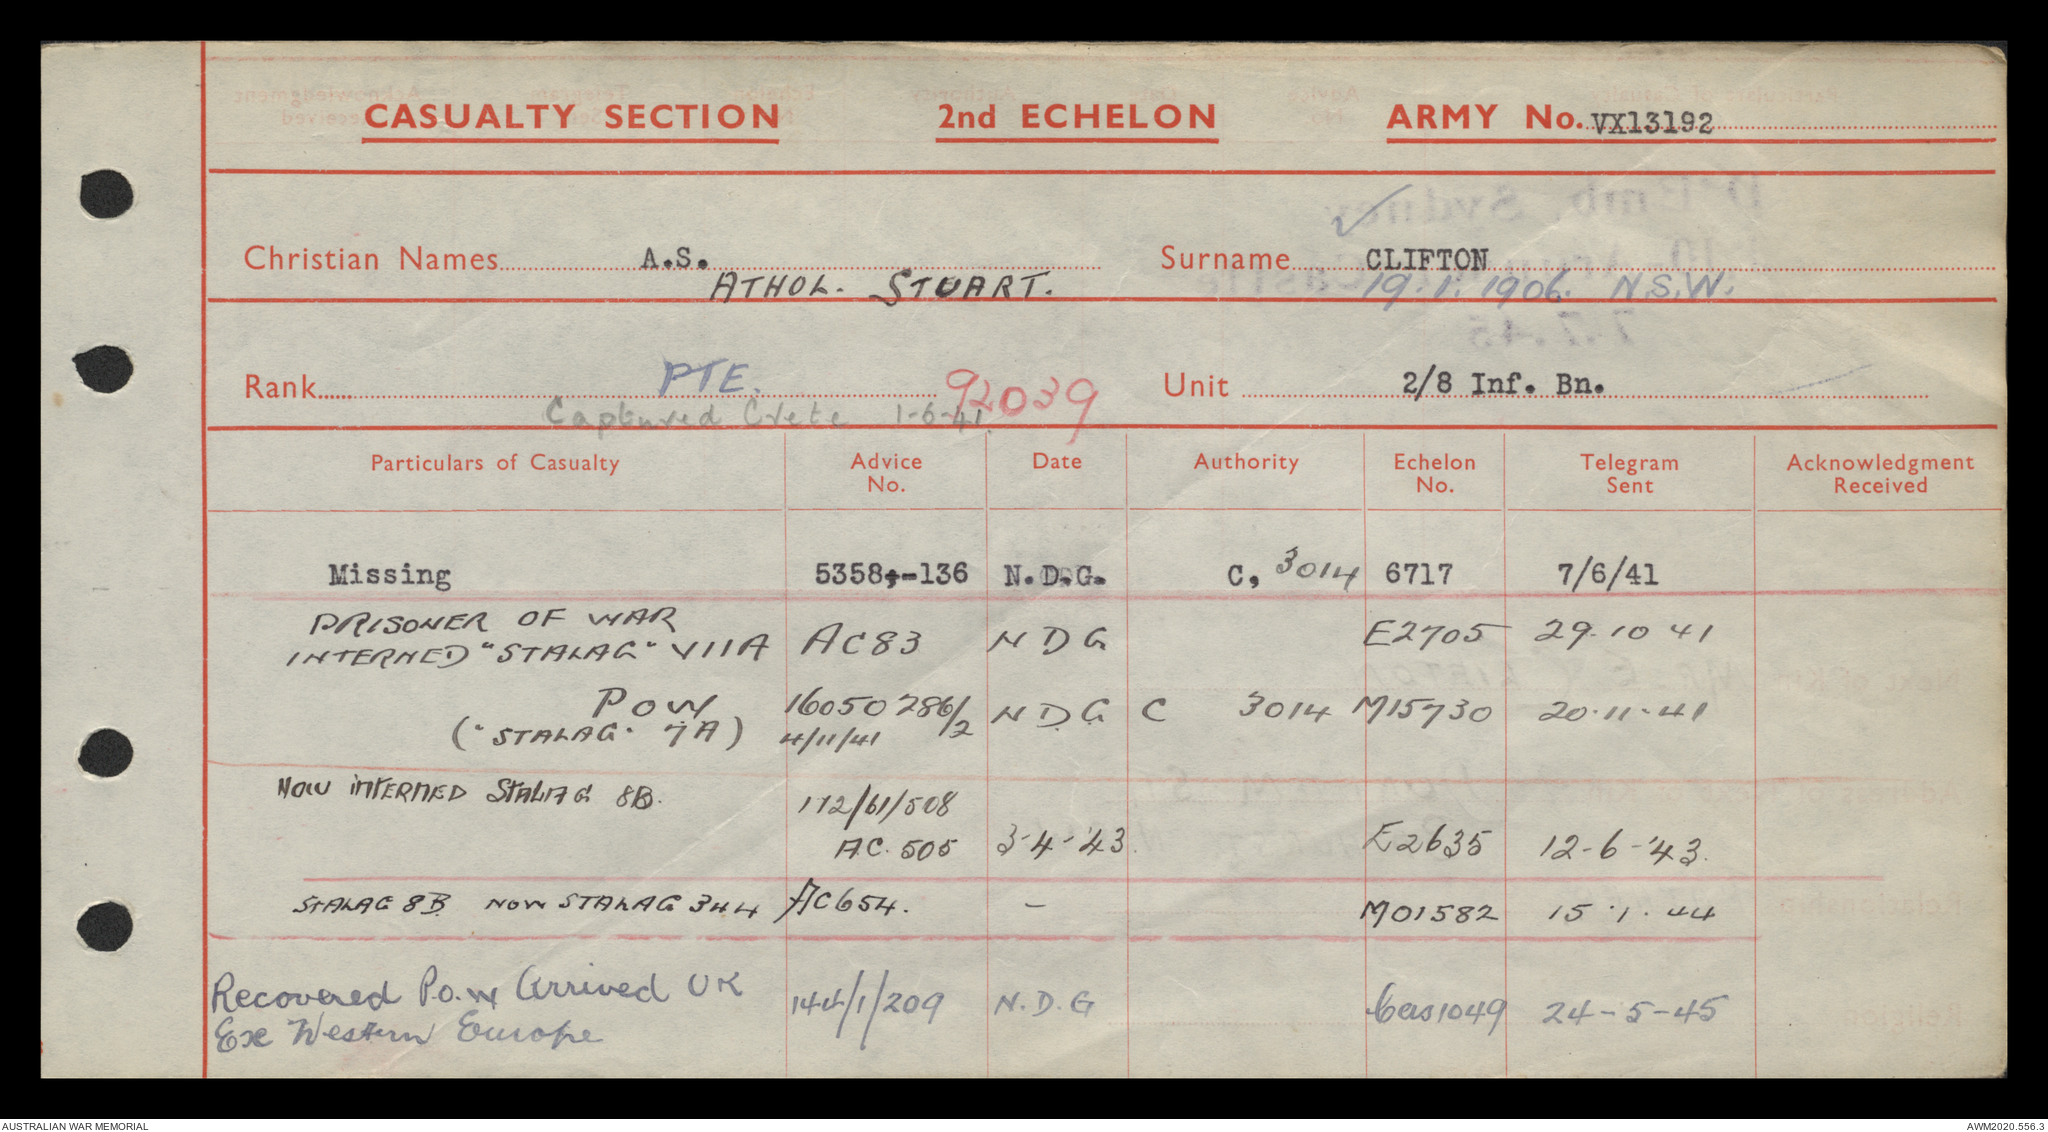 CASUALTY SECTION 2nd ECHELON ARMY No. VX13192
Christian Names A.S. Surname CLIFTON
ATHOL. STUART. 19.1.1906. N.S.W.
Rank PTE. 92039 Unit 2/8 Inf. Bn.
Captured Crete 1-6-41.
Particulars of Casualty Advice No. Date Authority Echelon No. Telegram Sent Acknowledgment Received
Missing 5358,-136 N.D.G. C, 3014 6717 7/6/41
PRISONER OF WAR
INTERNED "STALAG" VIIA AC83 NDG E2705 29.10 41
POW 16050 286/2 NDG C 3014 M15730 20.11.41
("STALAG. 7A) 4/11/41
NOW INTERNED STALAG 8B. 112/61/508
AC. 505 3-4-'43. E2635 12-6-'43.
STALAG 8B NOW STALAG 344 AC654. – M01582 15.1.44
Recovered P.o.w Arrived UK 144/1/209 N.D.G Cas1049 24-5-45
Exe Western Europe
AUSTRALIAN WAR MEMORIAL AWM2020.556.3